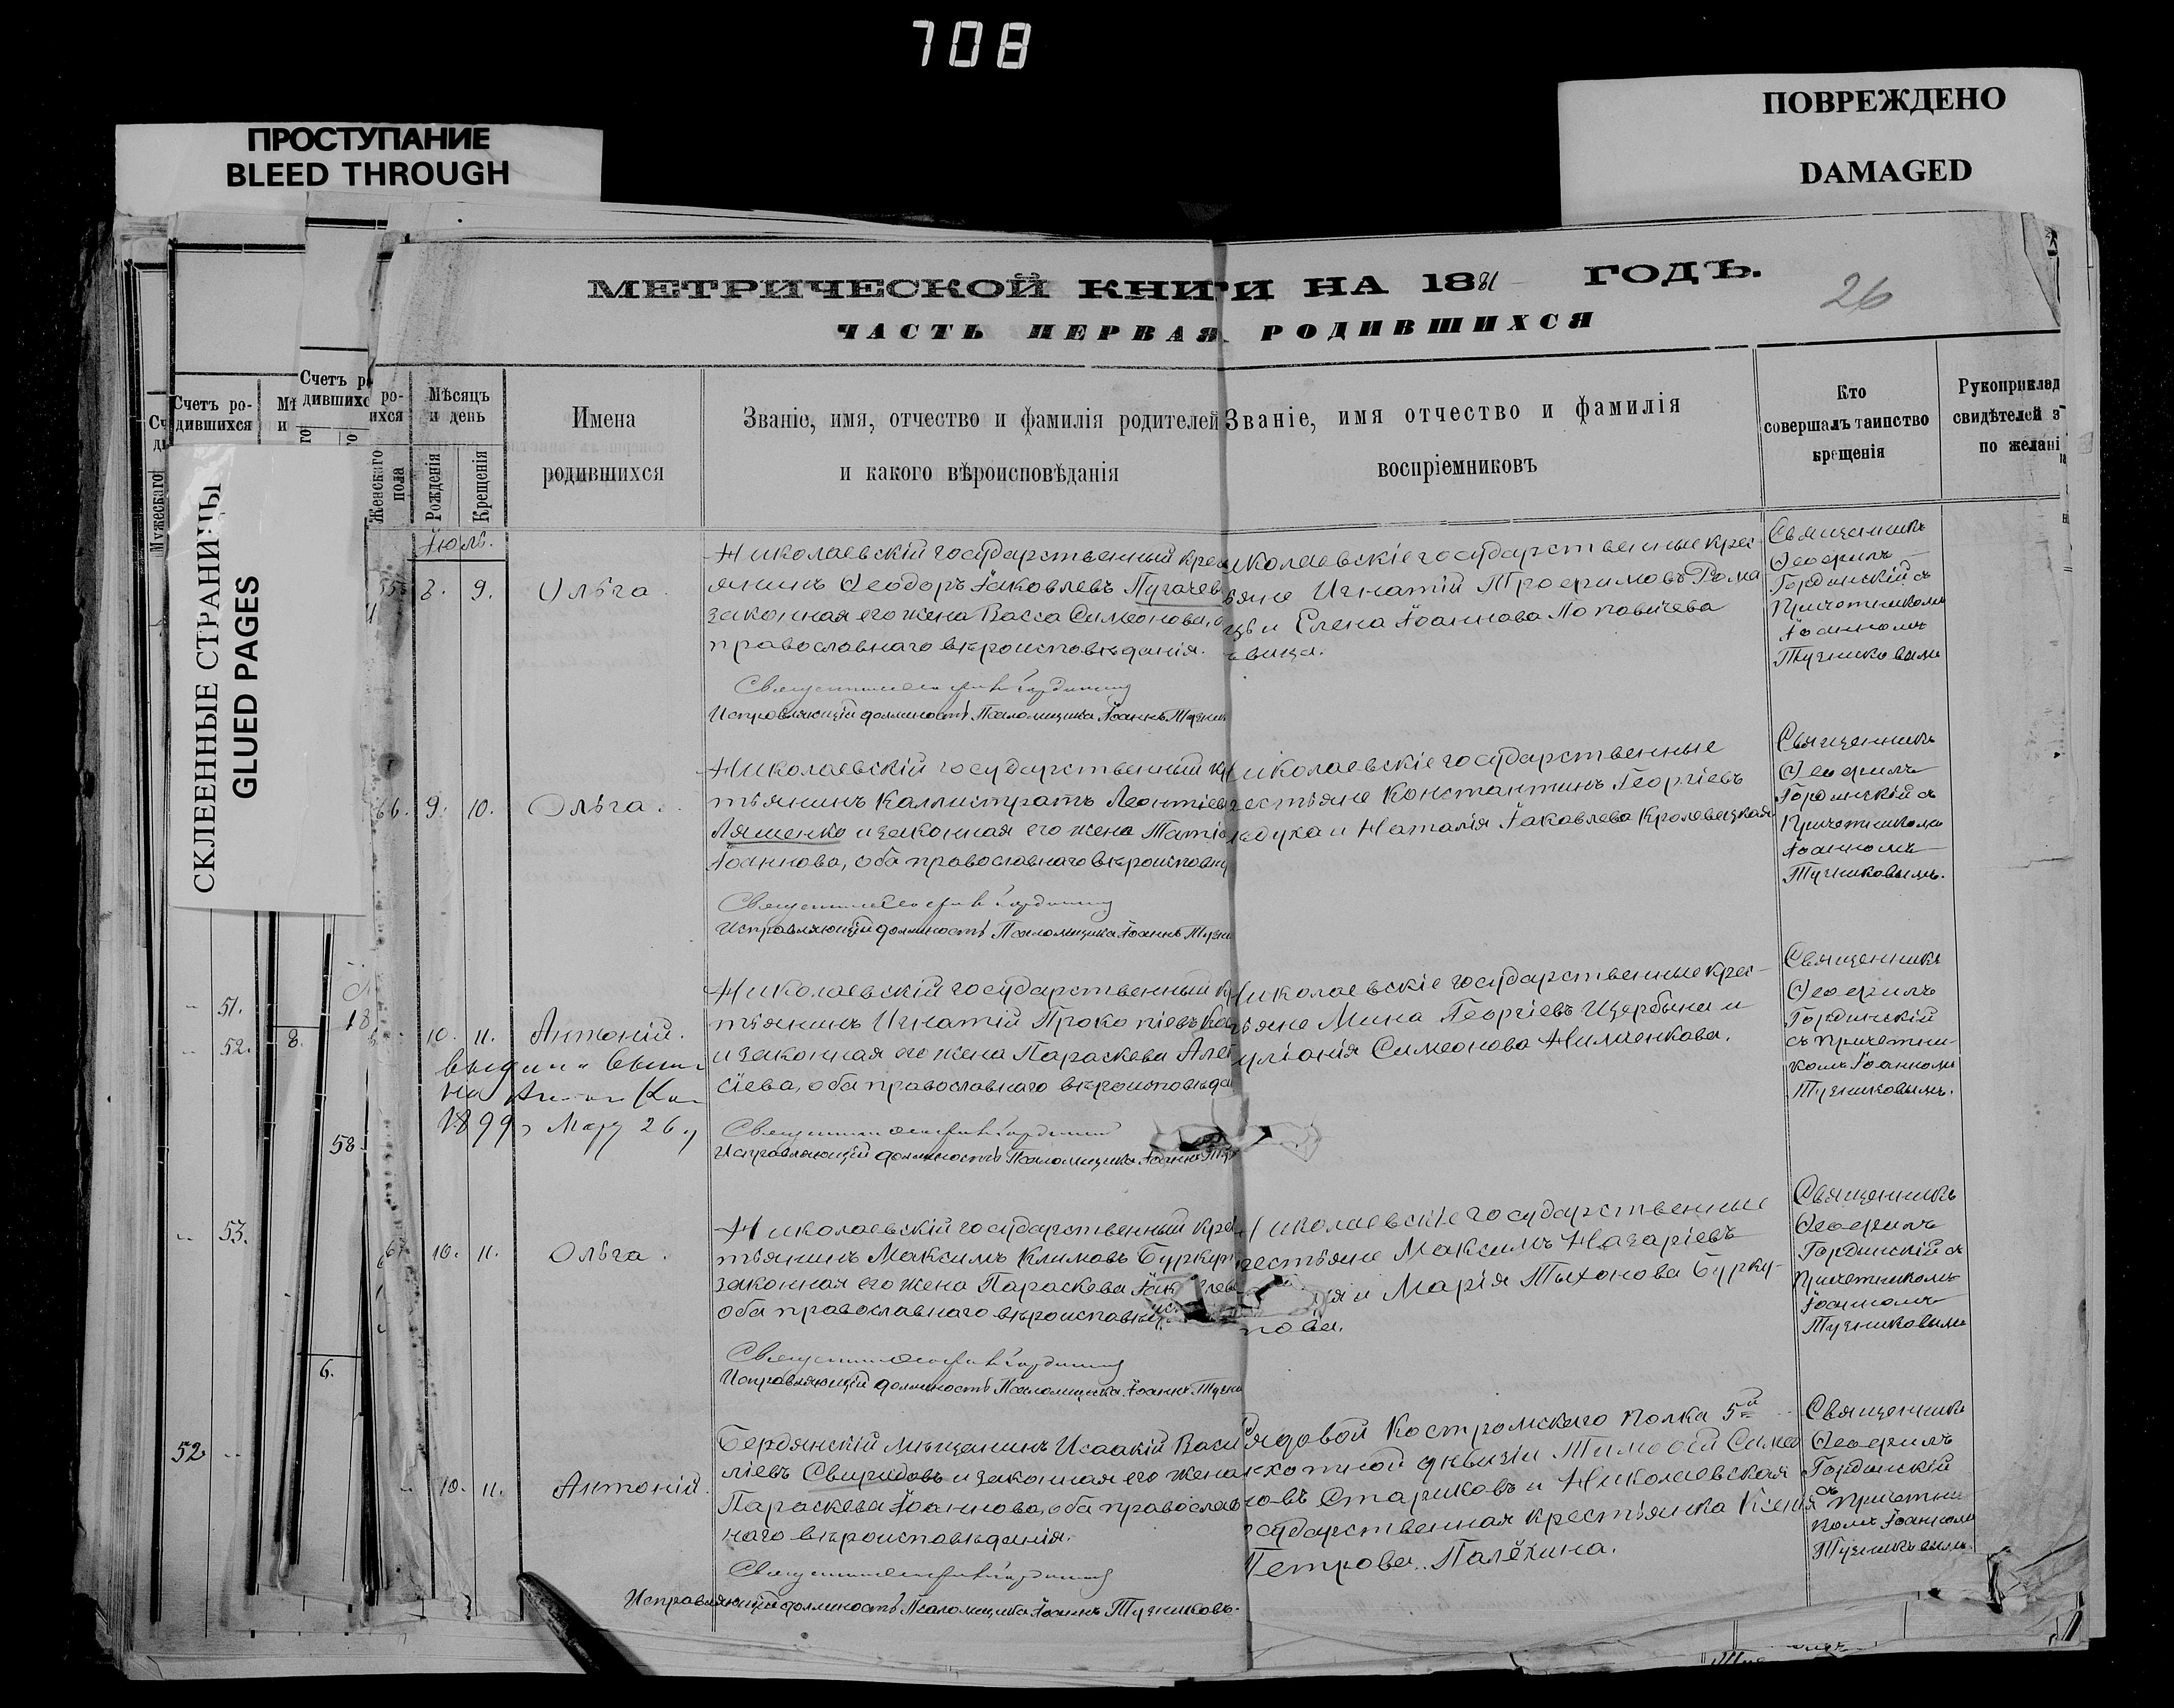 708
ПРОСТУПАНИЕ
BLEED THROUGH
ПОВРЕЖДЕНО
DAMAGED
СКЛЕЕННЫЕ СТРАНИЦЫ
GLUED PAGES
МЕТРИЧЕСКОЙ КНИГИ НА 1881 ГОДЪ.
26
ЧАСТЬ ПЕРВАЯ РОДИВШИХСЯ
Счетъ ро-
дившихся
Мужескаго
Женскаго
пола
Мѣсяцъ
и день
Рожденія
Крещенія
Имена
родившихся
Званіе, имя, отчество и фамилія родителей
и какого вѣроисповѣданія
Званіе, имя отчество и фамилія
воспріемниковъ
Кто
совершалъ таинство
крещенія
Рукоприклад
свидѣтелей з
по желані
Іюль.
8. 9. Ольга.
Николаевскій государственный крес
янинъ Ѳеодоръ Іаковлевъ Пугачев
законная его жена Васса Симеонова, о
православнаго вѣроисповѣданія.
Исправляющій должность Псаломщика Іоаннъ
иколаевскіе государственные крес
ьяне Игнатій Трофимовъ Рома
цъ и Елена Іоаннова Поповичева
ѣвица.
Священникъ
Ѳеофилъ
Гординскій съ
Причетникомъ
Іоанномъ
66. 9. 10. Ольга.
Николаевскій государственный кр
тьянинъ Каллистратъ Леонтіев
Ляшенко и законная его жена Татіа
Іоаннова, оба православнаго вѣроисповѣ
Исправляющій должность Псаломщика Іоаннъ
иколаевскіе государственные
рестьяне Константинъ Георгіевъ
и Наталія Іаковлева Кролевецкая
Священникъ
Ѳеофилъ
Гординскій съ
Причетникомъ
Іоанномъ
51.
52. 8.
10. 11. Антоній.
1899 Мар 26
Николаевскій государственный кр
тьянинъ Игнатій Прокопіевъ
и законная его жена Параскева Але
сіева, оба православнаго вѣроисповѣда
Исправляющій должность Псаломщика Іоаннъ
Николаевскіе государственные крес-
ьяне Мина Георгіевъ Щербина и
уліанія Симеонова
Священникъ
Ѳеофилъ
Гординскій
съ Причетни-
комъ Іоанномъ
58.
53.
10. 11. Ольга.
Николаевскій государственный крес
тьянинъ Максимъ Климовъ Буркут
законная его жена Параскева
оба православнаго вѣроисповѣд
Исправляющій должность Псаломщика Іоаннъ
Николаевскіе государственные
рестьяне Максимъ Назаріевъ
и Марія Тихонова Бурку-
Священникъ
Ѳеофилъ
Гординскій съ
Причетникомъ
Іоанномъ
6.
52.
10. 11. Антоній.
Бердянскій мѣщанинъ Исаакій Васи
ліевъ Свиридовъ и законная его жена
Параскева Іоаннова, оба православ
наго вѣроисповѣданія.
Исправляющій должность Псаломщика Іоаннъ
Рядовой Костромскаго полка 5й
хотной дивизіи Тимоѳей Симео
новъ Стариковъ и Николаевская
осударственная крестьянка Ксенія
Петрова Палёхина.
Священникъ
Ѳеофилъ
Гординскій
съ Причетни
комъ Іоанномъ